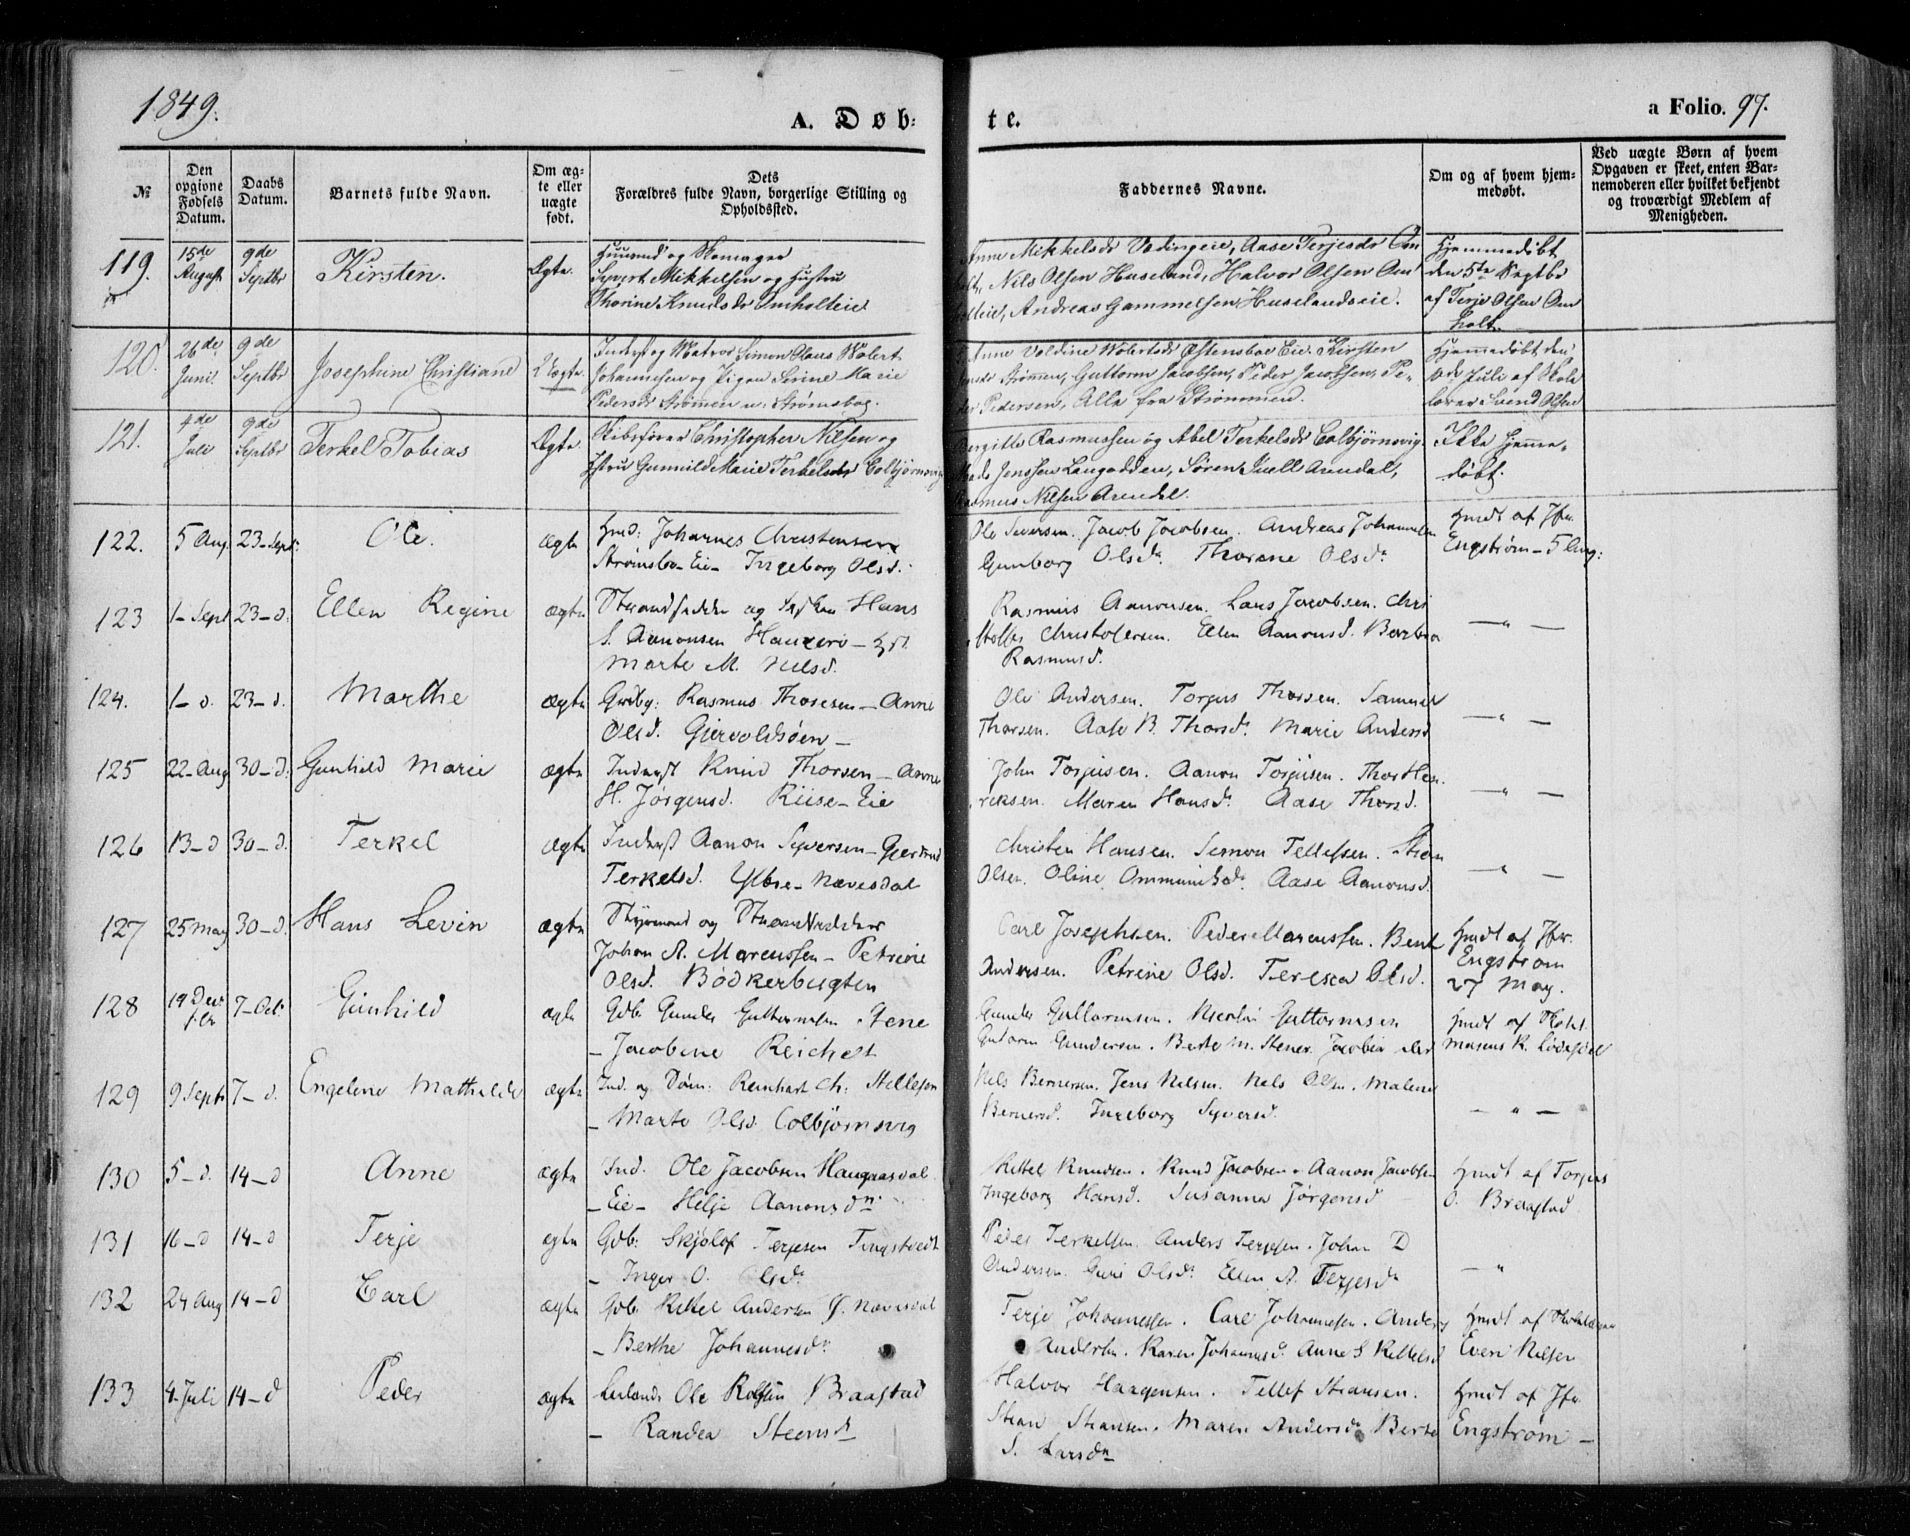 1849.
A. Døb-
te.
a Folio. 97.
№
Den opgivne Fødsels Datum.
Daabs Datum.
Barnets fulde Navn.
Om ægte eller uægte født.
Dets Forældres fulde Navn, borgerlige Stilling og Opholdssted.
Faddernes Navne.
Om og af hvem hjemmedøbt.
Ved uægte Børn af hvem Opgaven er skeet, enten Barnemoderen eller hvilket bekjendt og troværdigt Medlem af Menigheden.
119. 15de August 9de Septbr Kirsten. Ægte. Huusmd og Skomager
Syvert Mikkelsen og Hustru
Thorine Knudsdr
Anne Mikkelsdr Aase Terjesdr
Nils Olsen Huseland, Halvor Olsen
Andreas Gammelsen Huselandseie.
Hjemmedøbt
den 5te Septbr
af Terje Olsen Om
holt.
120. 26de Juni 9de Septbr Josephine Christiane Uægte. Inderst og Matros Simon Claus Wolert
Johannesen og Pigen Serine Marie
Pedersdr Strømmen
Anne Voldine Kirsten
Strømmen, Guttorm Jacobsen, Peder Jacobsen, Pe-
der Pedersen, Alle fra Strømmen.
Hjemmedøbt den
Juli af Skole
lærer Svend Olsen
121. 4de Juli 9de Septbr Terkel Tobias Ægte. Skibsfører Christopher Nilsen og
Hstru Gunnild Marie Terkelsdr Colbjørnsvig
Bergitte Rasmussen og Abel Terkelsdr Colbjørnsvig.
Mads Jenssen Langodden, Søren Juell Arendal,
Rasmus Nilsen Arendal.
Ikke Hjemme-
døbt.
122. 5 Aug. 23-Sept: Ole. ægte Hmd: Johannes Christensen
Strømsbo-Eie- Ingeborg Olsd.
Ole Seversen. Jacob Jacobsen. Andreas Johannesen
Gunborg Olsdr. Thorene Olsdr
Hmdt af Jfr.
Engstrøm - 5 Aug:
123 1-Sept 23-d. Ellen Regine ægte Strandsidder og Hans
S. Aanonsen - Hst.
Marte M. Nilsd.
Rasmus Aanonsen. Lars Jacobsen. Chri
Christofersen. Ellen Aanonsd. Barbra
Rasmusd.
- " -
124. 1-d. 23-d. Marthe ægte Grdbg: Rasmus Thorsen - Anne
Olsd. Gjervoldsøen -
Ole Andersen. Torjus Thorsen. Samuel
Thorsen. Aase B. Thorsdr Marie Andersd
- " -
125 22-Aug 30-d: Gunhild Marie ægte Inderst Knud Thorsen - Anne
H. Jørgensd. Riise-Eie
John Torjusen. Aanon Torjusen. Thor Hen-
riksen. Maren Hansdr. Aase Thorsd.
- " -
126 13-d 30-d. Terkel ægte Inderst Aanon Syversen - Gjertrud
Terkelsd. Nævesdal
Christen Hansen. Semon Tellefsen. Stian
Olsen. Oline Ommundsdr. Aase Aanonsd.
- " -
127 25 May 30-d. Hans Levin ægte Styrmand og Strandsidder
Johan A. Marcussen - Petrine
Olsd. Bødkerbugten
Carl Josephsen. Peder Marcussen. Bent
Andersen. Petrine Olsd. Teresea Olsd.
Hmdt af Jfr.
Engstrøm
27 May.
128 19 7-Oct: Gunhild ægte Gdb: Gunder Guttormsen.
- Jacobine Reichelt
Gunder Guttormsen. Nicolai Guttormsen
Gutorm Gundersen. Berte M.
Hmdt af
129 9 Septr 7-d. Engeline Mathilde ægte Ind. og Reinhart Ch:
- Marte Olsd. Colbjørnsvig
Nels Bernersen. Jens Nilsen. Nels Olsen. Malene
Bernersd. Ingeborg Syversd.
- " -
130 5-d. 14-d Anne ægte Ind. Ole Jacobsen Haugaasdal
- Eie - Helje Aanonsdr.
Kittel Knudsen. Knud Jacobsen. Aanon Jacobsen
Ingeborg Hansd. Susanna Jørgensd
Hmdt af Torjus
O. Braastad
131 16-d 14-d Terje ægte Gdb: Skjølof Terjesen Tingstvedt
- Inger O. Olsdr
Peder Terkelsen. Anders Terjesen. Johan D
Andersen. Guri Olsdr. Ellen A. Terjesdr
- "
132 24 Aug 14-d Carl ægte Gdb: Kittel Andersen Nævesdal
- Berthe Johannesdr
Terje Johannessen. Carl Johannesen. Anders
Andersen. Karen Johannesd. Anne S Kittelsd
Hmdt af
Even Nilsen
133 4. Juli 14-d Peder ægte Ole Braastad
- Randea Steensdr
Halvor Haagensen. Tellef Stiansen.
Stian Stiansen. Maren Andersdr Berte
S. Larsdr
Hmdt af Jfr.
Engstrøm -